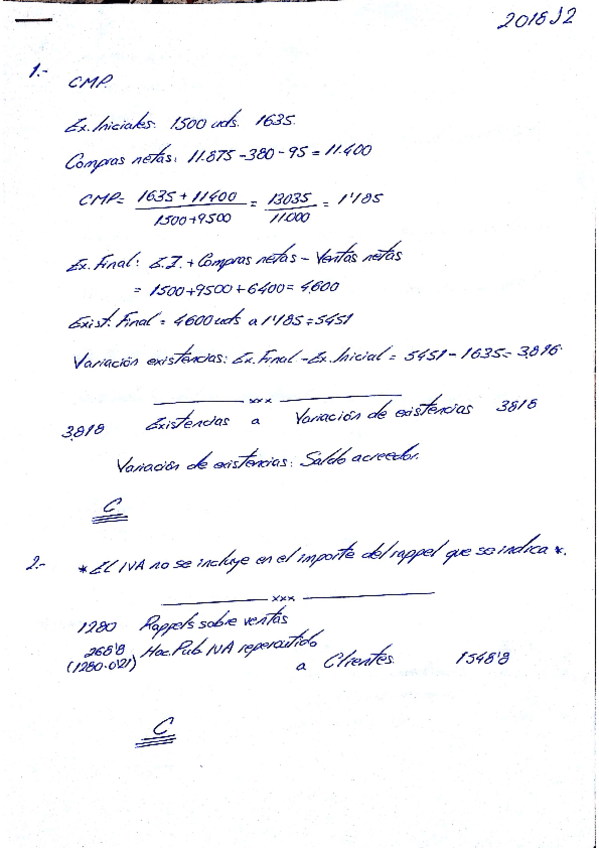 2018J2
1.- CMP.
Ex. Iniciales: 1500 uds. 1635.
Compras netas: 11.875 - 380 - 95 = 11.400
CMP = (1635 + 11400) / (1500 + 9500) = 13035 / 11.000 = 1'185
Ex. Final: E.I. + Compras netas - Ventas netas
= 1500 + 9500 + 6400 = 4.600
Exist. Final = 4600 uds a 1'185 = 5451
Variación existencias: Ex. Final - Ex. Inicial = 5451 - 1635 = 3.816.
xxx
3.818 Existencias a Variación de existencias 3818
Variación de existencias: Saldo acreedor.
C
2.- * El IVA no se incluye en el importe del rappel que se indica *.
xxx
1280 Rappels sobre ventas
268'8 Hac. Pub. IVA repercutido
(1280·0'21) a Clientes 1548'8
C